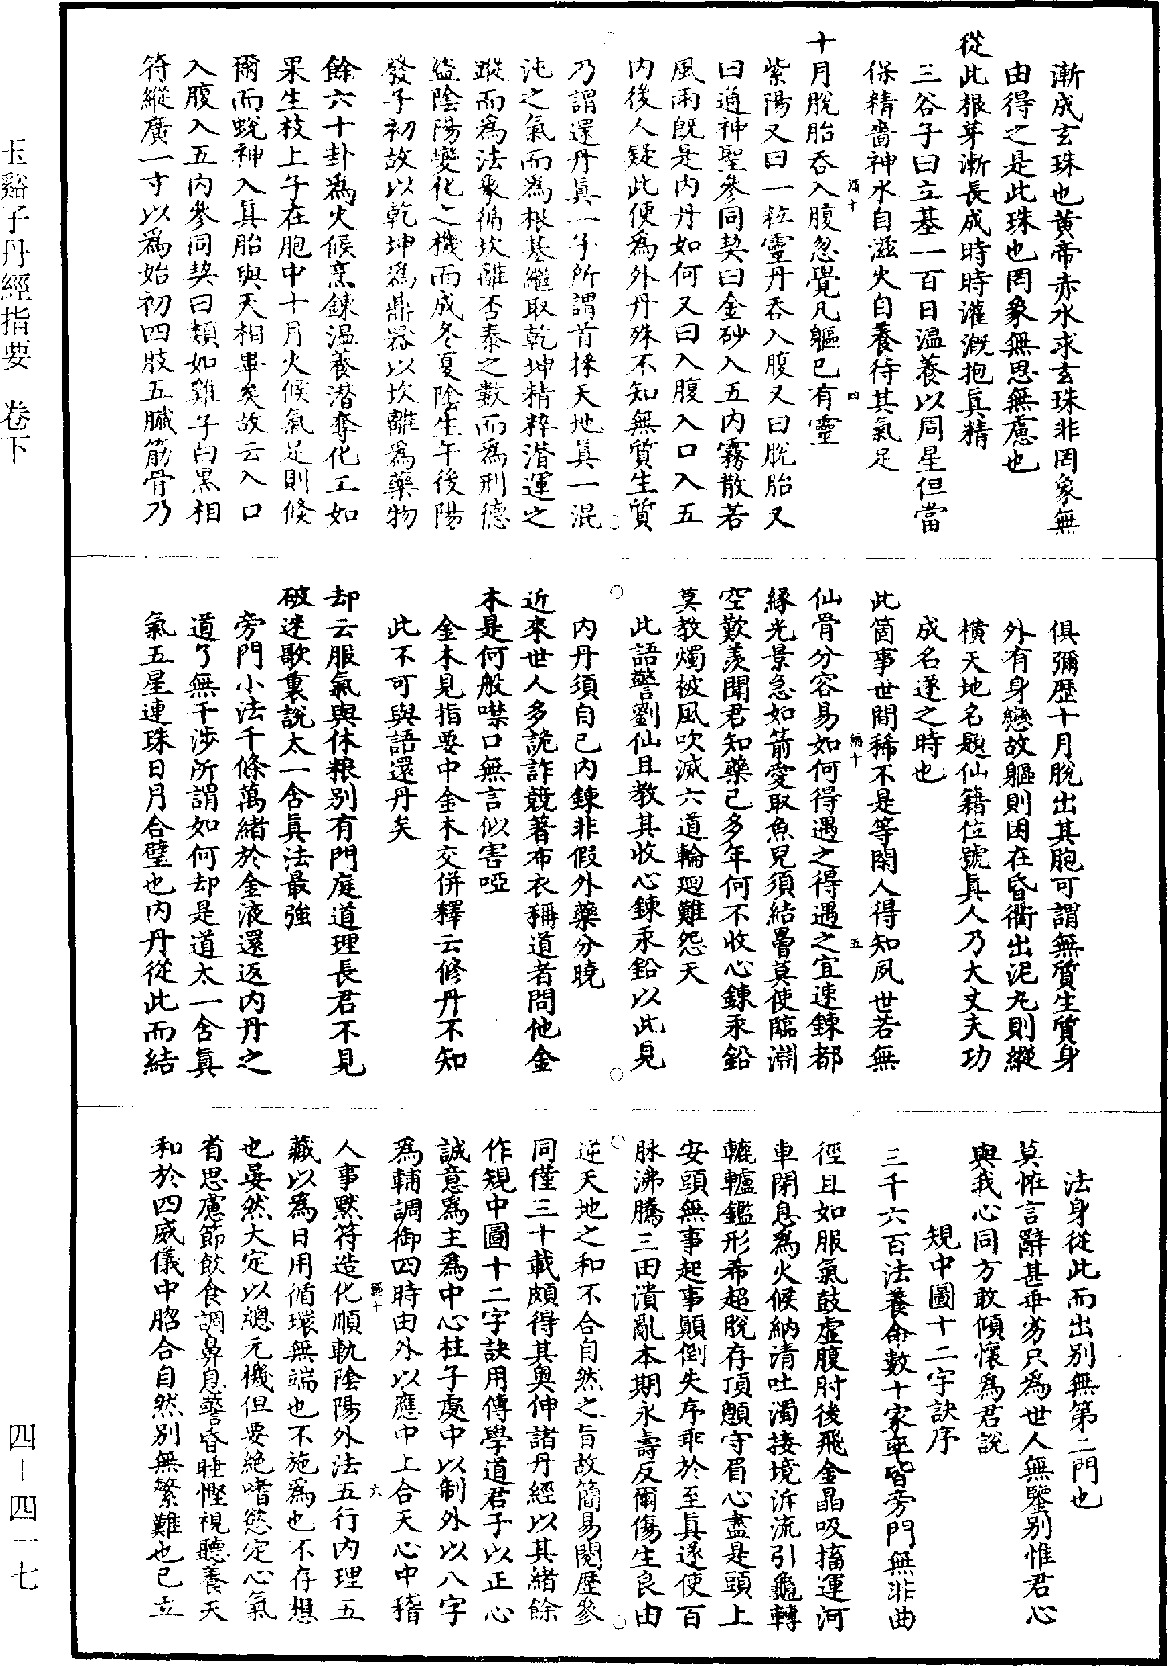 漸成玄珠也黃帝赤水求玄珠非罔象無
由得之是此珠也罔象無思無慮也
從此根芽漸長成時時灌溉抱眞精
三谷子曰立基一百日温養以周星但當
保精嗇神水自滋火自養待其氣足
十月脫胎吞入腹忽覺凡軀已有靈
紫陽又曰一粒靈丹吞入腹又曰脫胎又
曰道神聖參同契曰金砂入五內霧散若
風雨旣是內丹如何又曰入腹入口入五
內後人疑此便爲外丹殊不知無質生質
乃謂還丹眞一子所謂首採天地眞一混
沌之氣而爲根基繼取乾坤精粹潛運之
蹤而爲法象循坎離否泰之數而爲刑德
盜陰陽變化之機而成冬夏陰生午後陽
發子初故以乾坤爲鼎器以坎離爲藥物
餘六十卦爲火候烹鍊温養潛奪化工如
果生枝上子在胞中十月火候氣足則倏
爾而蛻神入眞胎與天相畢矣故云入口
入腹入五內參同契曰類如雞子白黑相
符縱廣一寸以爲始初四肢五臟筋骨乃
俱彌歷十月脫出其胞可謂無質生質身
外有身戀故軀則困在昏衢出泥丸則縱
橫天地名題仙籍位號眞人乃大丈夫功
成名遂之時也
此箇事世間稀不是等閑人得知夙世若無
仙骨分容易如何得遇之得遇之宜速鍊都
緣光景急如箭愛取魚兒須結罾莫使臨淵
空歎羨聞君知藥已多年何不收心鍊汞鉛
莫教燭被風吹滅六道輪廻難怨天
此語警劉仙且教其收心鍊汞鉛以此見
內丹須自己內鍊非假外藥分曉
近來世人多詭詐競著布衣稱道者問他金
木是何般噤口無言似害啞
金木見指要中金木交併釋云修丹不知
此不可與語還丹矣
却云服氣與休粮別有門庭道理長君不見
破迷歌裏說太一含眞法最強
旁門小法千條萬緒於金液還返內丹之
道了無干涉所謂如何却是道太一含眞
氣五星連珠日月合璧也內丹從此而結
法身從此而出別無第二門也
莫怪言辭甚乖劣只爲世人無鑒別惟君心
與我心同方敢傾懷爲君說
規中圖十二字訣序
三千六百法養命數十家率皆旁門無非曲
徑且如服氣鼓虛腹肘後飛金晶吸搐運河
車閉息爲火候納清吐濁接境泝流引龜轉
轆轤鑑形希超脫存頂顖守眉心盡是頭上
安頭無事起事顚倒失序乖於至眞遂使百
脉沸騰三田潰亂本期永壽反爾傷生良由
逆天地之和不合自然之旨故簡易閱歷參
同僅三十載頗得其奥伸諸丹經以其緒餘
作規中圖十二字訣用傳學道君子以正心
誠意爲主爲中心柱子處中以制外以八字
爲輔調御四時由外以應中上合天心中稽
人事默符造化順軌陰陽外法五行內理五
藏以爲日用循環無端也不施爲也不存想
也晏然大定以總元機但要絕嗜慾定心氣
省思慮節飲食調鼻息警昏睡慳視聽養天
和於四威儀中脗合自然別無繁難也已立
玉谿子丹經指要　卷下
四－四一七